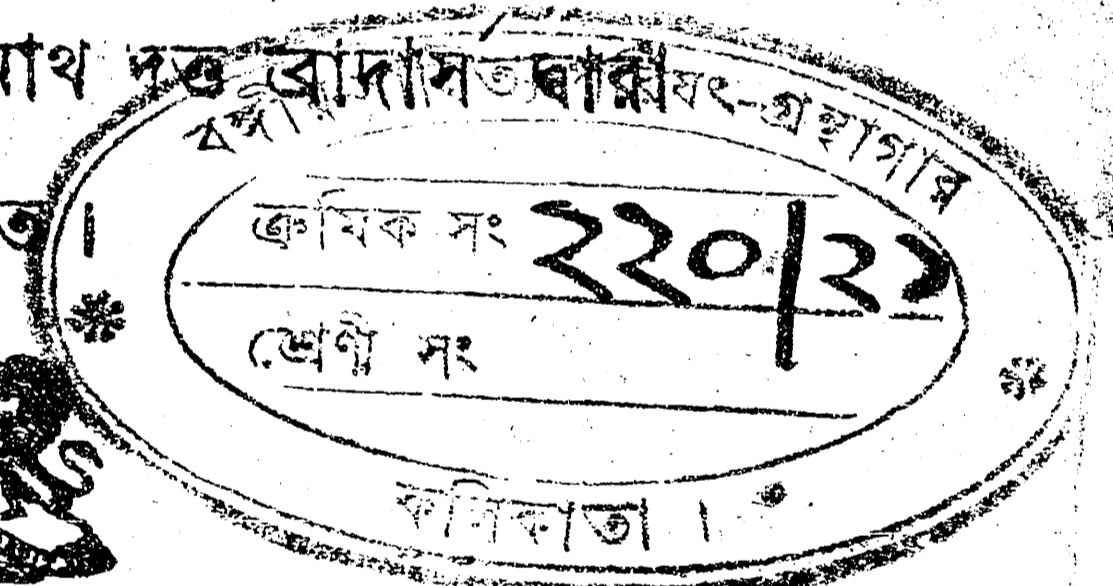 নাথ দত্ত ব্রাদার্স দ্বারা
ত।
বঙ্গীয় সাহিত্য পরিষৎ-গ্রন্থাগার
ক্রমিক সং ২২০/২১
শ্রেণী সং
কলিকাতা।